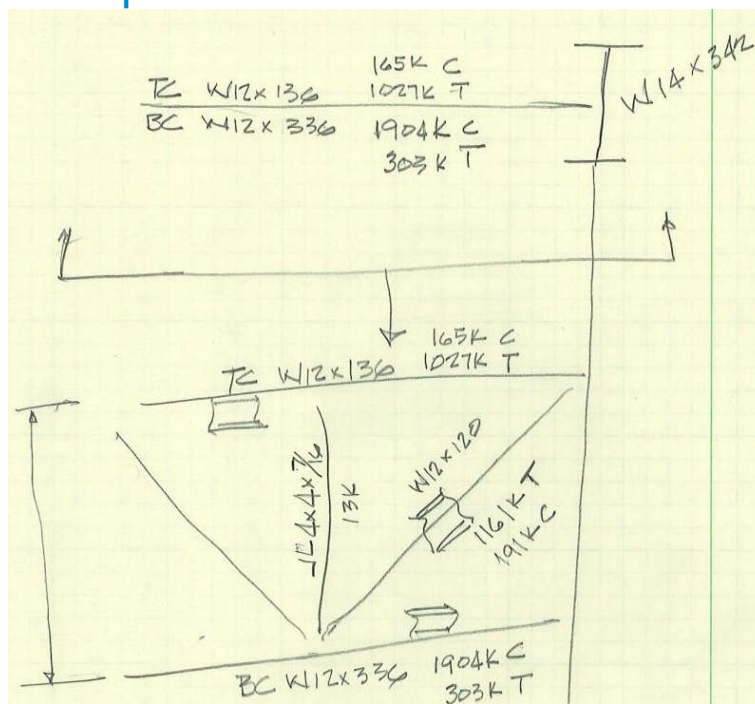 165K C
TC W12x136 1027K T
BC W12x336 1904K C
303K T
W14x342
165K C
TC W12x136 1027K T
⅃L 4x4x7/16
13K
W12x120
1161K T
191K C
BC W12x336 1904K C
303K T